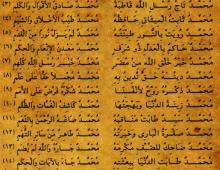 مُحَمَّدٌ تَاجُ رُسْلِ اللهِ قَاطِبَةً مُحَمَّدٌ صَادِقُ الْأَقْوَالِ وَالْكَلِمِ (٣)
مُحَمَّدٌ ثَابِتُ الْمِيثَاقِ حَافِظُهُ مُحَمَّدٌ طَيِّبُ الْأَخْلَاقِ وَالشِّيَمِ (٤)
مُحَمَّدٌ رُوِيَتْ بِالنُّورِ طِينَتُهُ مُحَمَّدٌ لَمْ يَزَلْ نُورًا مِنَ الْقِدَمِ (٥)
مُحَمَّدٌ حَاكِمٌ بِالْعَدْلِ ذُو شَرَفٍ مُحَمَّدٌ مَعْدِنُ الْإِنْعَامِ وَالْحِكَمِ (٦)
مُحَمَّدٌ خَيْرُ خَلْقِ اللهِ مِنْ مُضَرٍ مُحَمَّدٌ خَيْرُ رُسْلِ اللهِ كُلِّهِمِ (٧)
مُحَمَّدٌ دِينُهُ حَقٌّ نَدِينُ بِهِ مُحَمَّدٌ مُجْمِلًا حَقًّا عَلَى عَلَمِ (٨)
مُحَمَّدٌ ذِكْرُهُ رُوحٌ لِأَنْفُسِنَا مُحَمَّدٌ شُكْرُهُ فَرْضٌ عَلَى الْأُمَمِ (٩)
مُحَمَّدٌ زِينَةُ الدُّنْيَا وَبَهْجَتُهَا مُحَمَّدٌ كَاشِفُ الْغُمَّاتِ وَالظُّلَمِ (١٠)
مُحَمَّدٌ سَيِّدٌ طَابَتْ مَنَاقِبُهُ مُحَمَّدٌ صَاغَهُ الرَّحْمٰنُ بِالنِّعَمِ (١١)
مُحَمَّدٌ صَفْوَةُ الْبَارِي وَخِيرَتُهُ مُحَمَّدٌ طَاهِرٌ مِنْ سَائِرِ التُّهَمِ (١٢)
مُحَمَّدٌ ضَاحِكٌ لِلضَّيْفِ مُكْرِمُهُ مُحَمَّدٌ جَارُهُ وَاللهِ لَمْ يُضَمِ (١٣)
مُحَمَّدٌ طَابَتِ الدُّنْيَا بِبِعْثَتِهِ مُحَمَّدٌ جَاءَ بِالْآيَاتِ وَالْحِكَمِ (١٤)